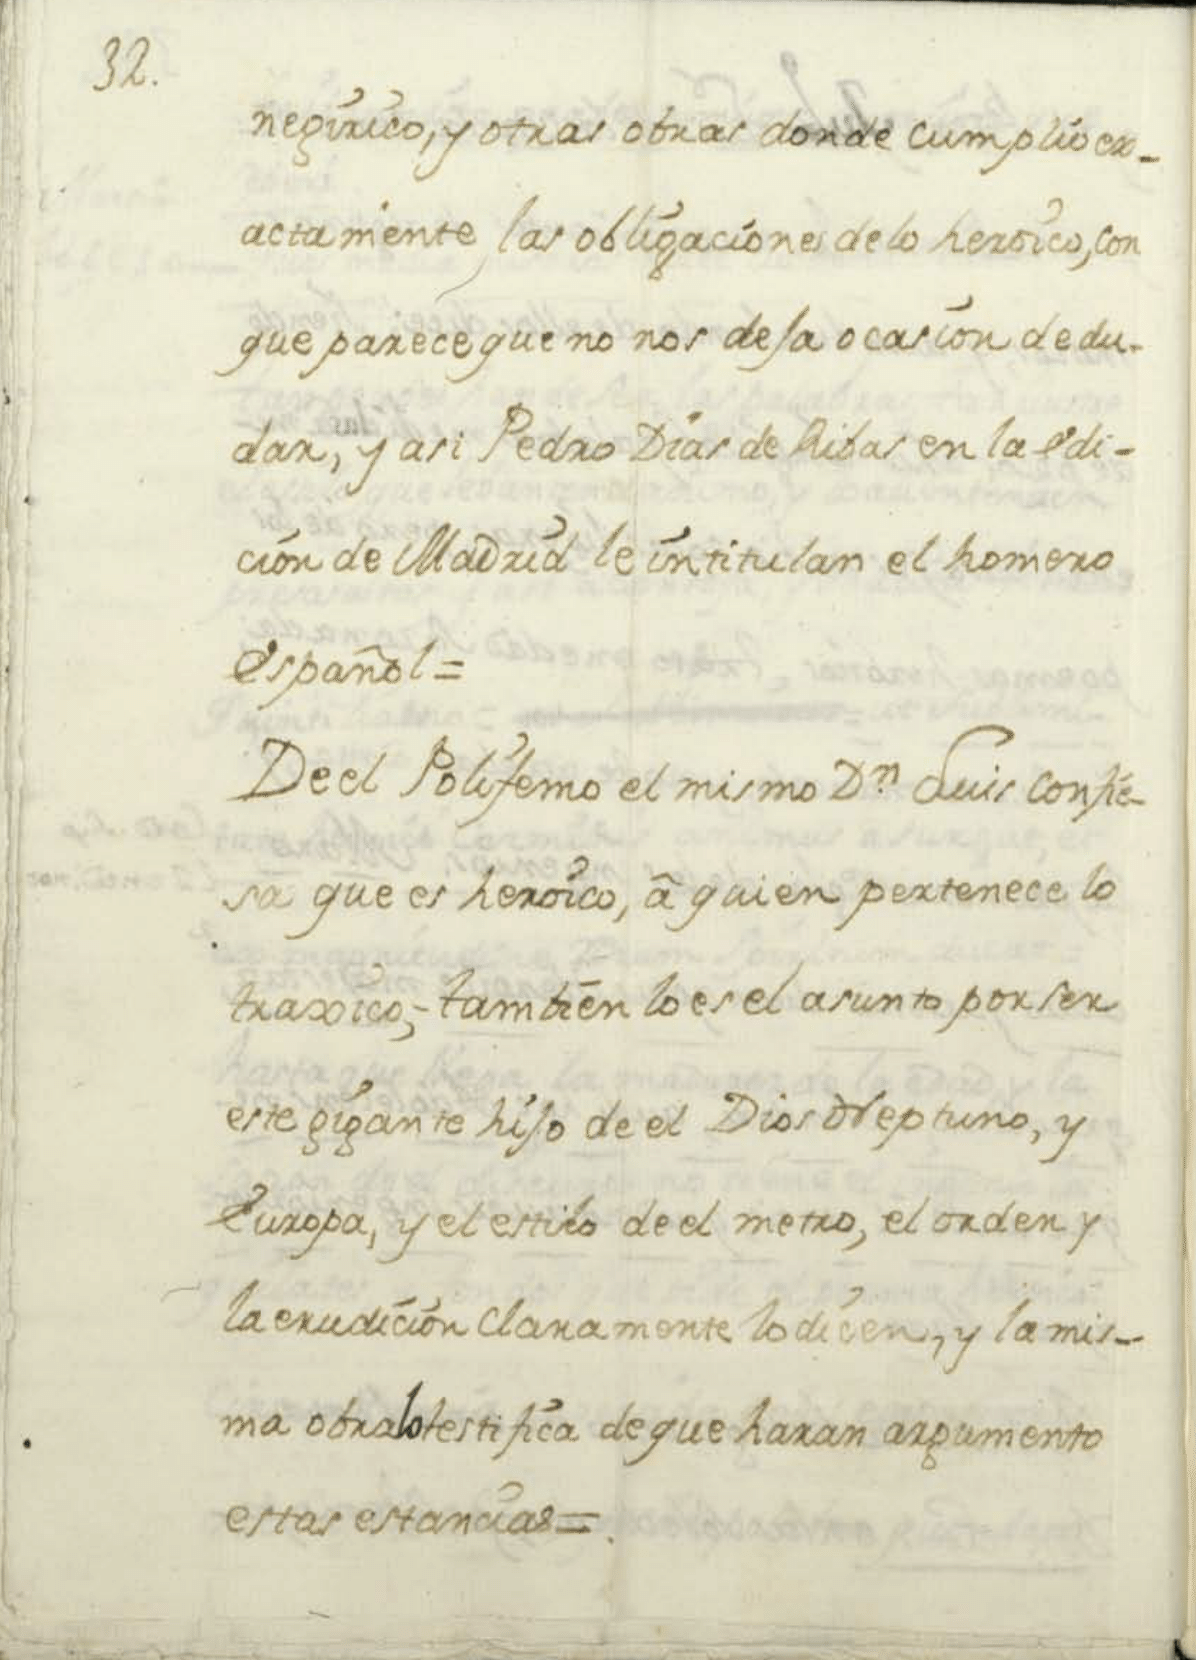 32.
negirico, y otras obras donde cumplio ex-
actamente las obligaciones de lo heroico, con
que parece que no nos deja ocasion de du-
dar, y asi Pedro Dias de Ribas en la edi-
cion de Madrid le intitulan el homero
español=
De el Polifemo el mismo Dn Luis confie-
sa que es heroico, â quien pertenece lo
traxico, tambien lo es el asunto por ser
este gigante hijo de el Dios Neptuno, y
Europa, y el estilo de el metro, el orden y
la erudicion claramente lo dicen, y la mis-
ma obra lo testifica de que haran argumento
estas estancias=